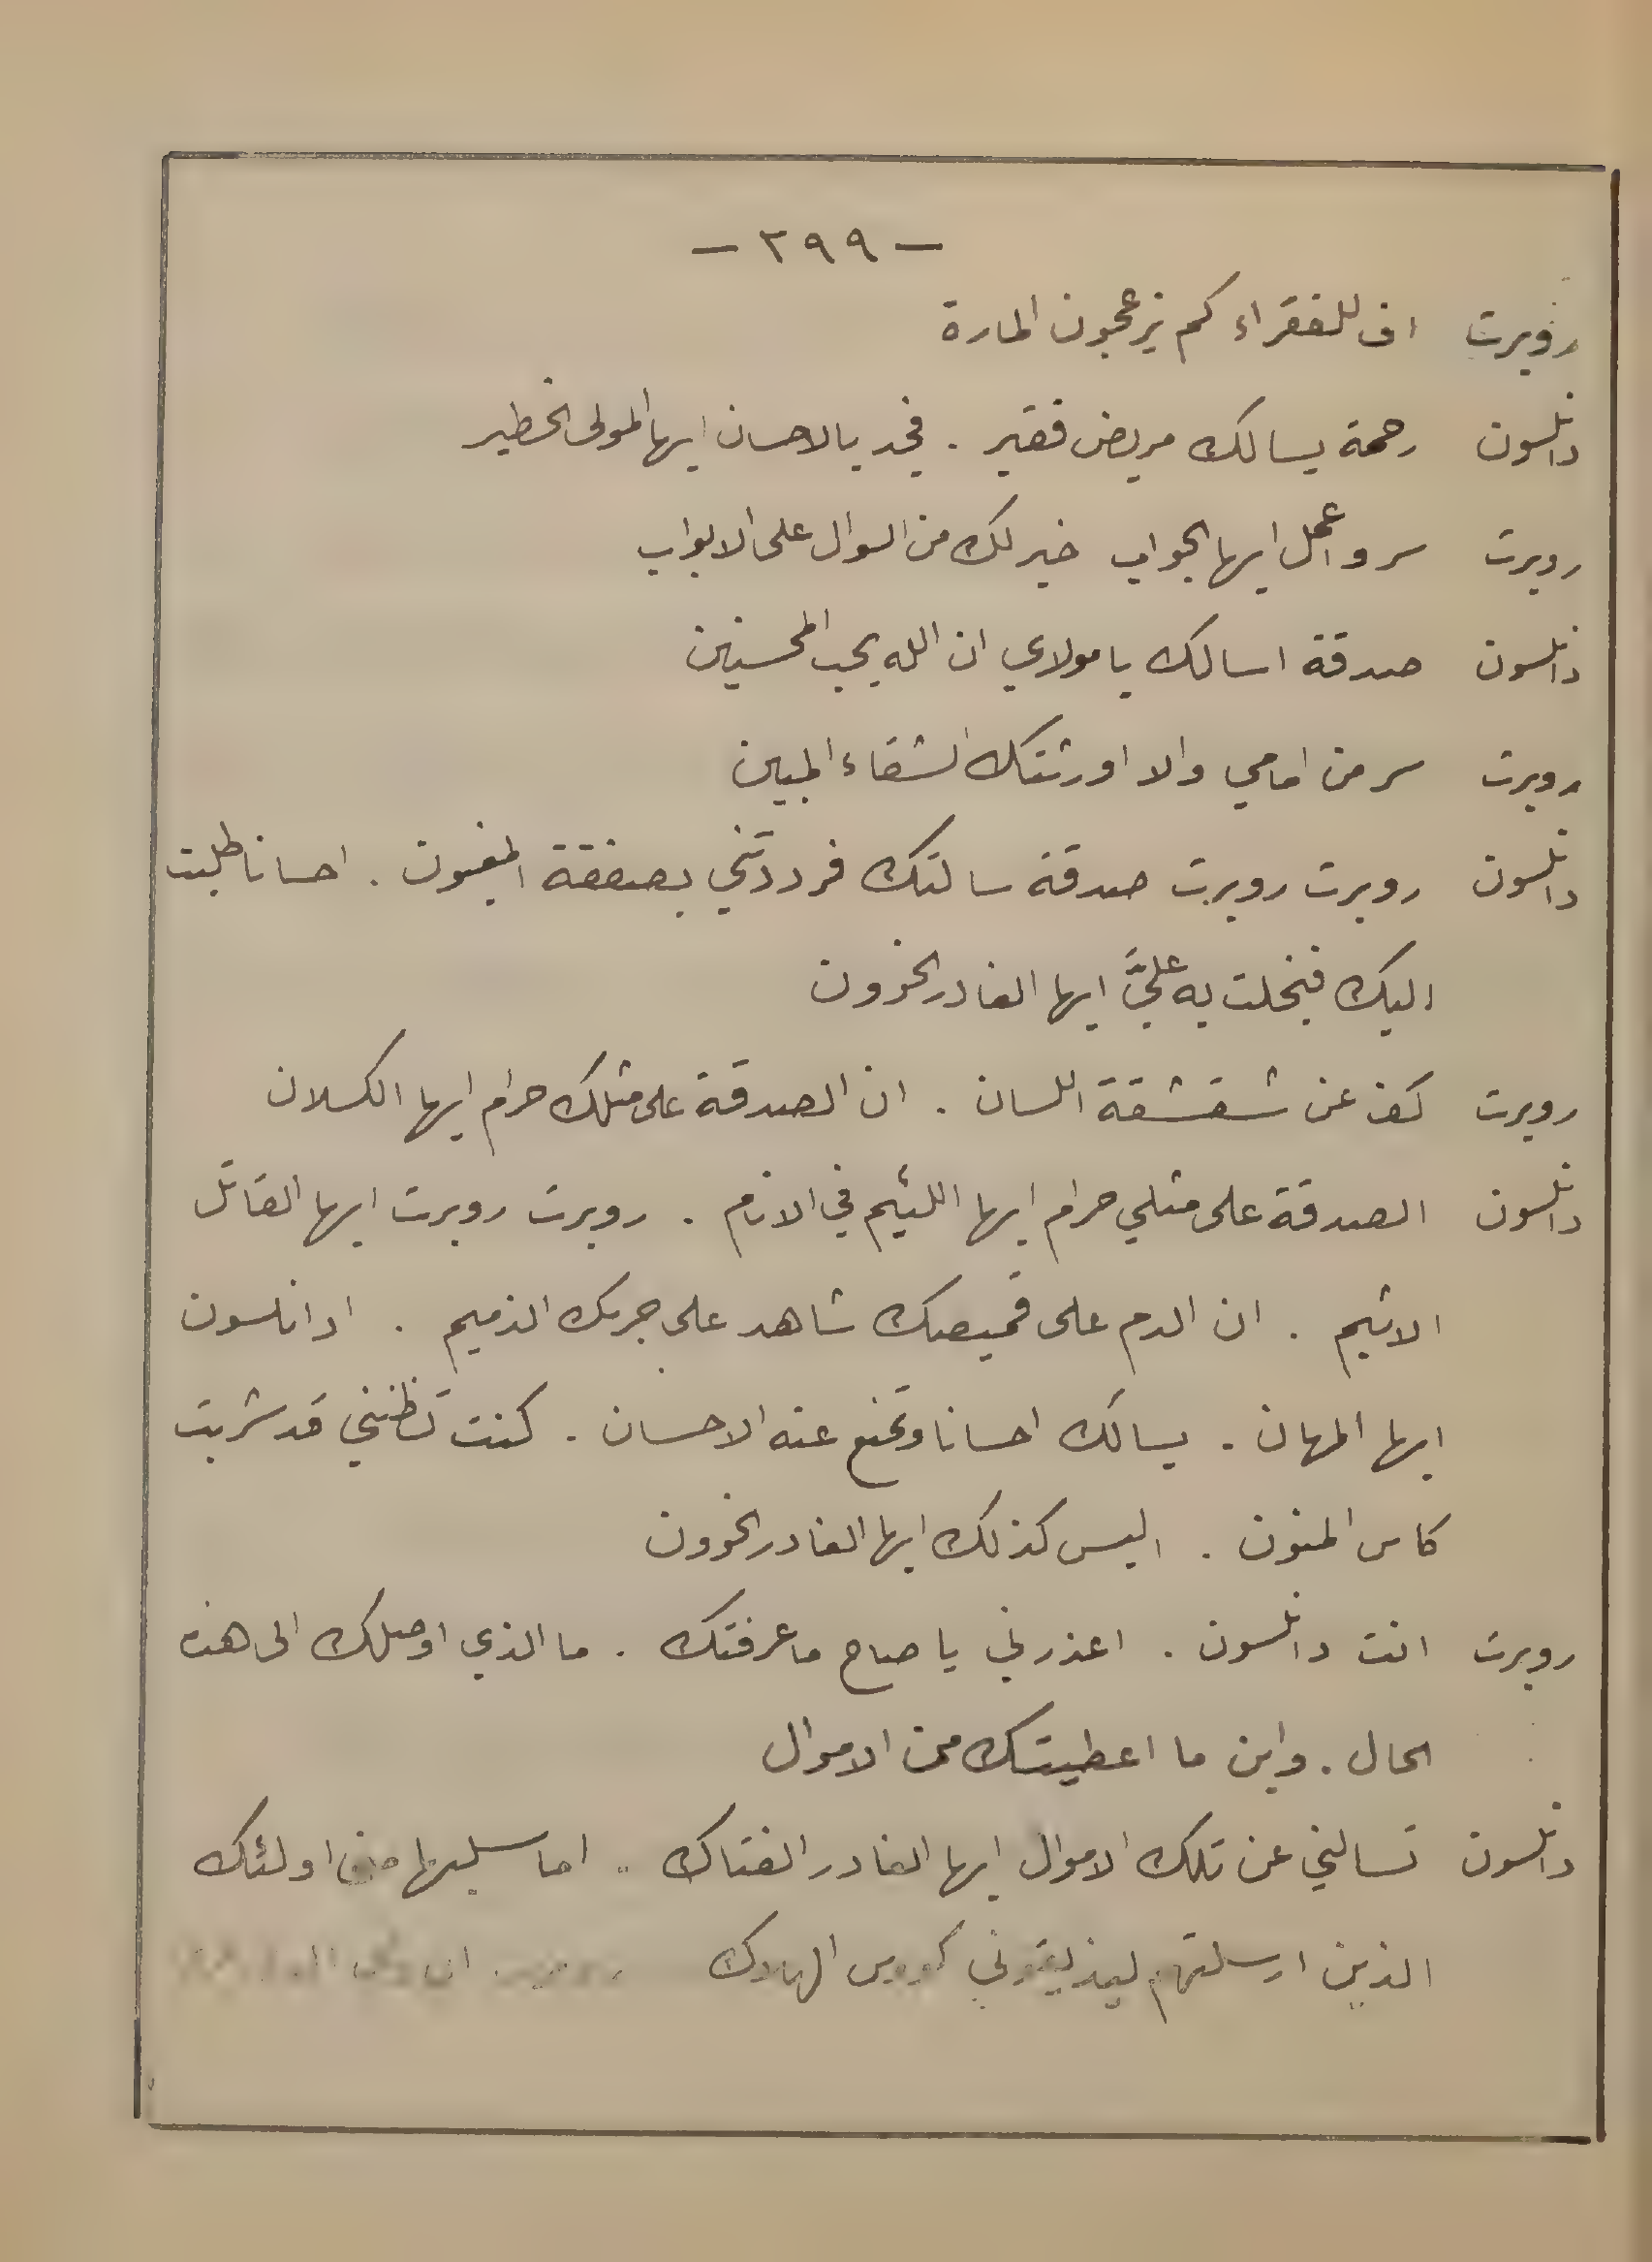 — ٢٩٩ —
روبرت اف للفقراء كم يزعجون المارة
دانلسون رحمة يسالك مريض فقير . فجد بالاحسان ايها المولى الخطير
روبرت سر واعمل ايها الجواب خير لك من السوال على الابواب
دانلسون صدقة اسالك يا مولاي ان الله يحب المحسنين
روبرت سر من امامي والا اورثتك الشقاء المبين
دانلسون روبرت روبرت صدقة سالتك فرددتني بصفقة المغبون . احسانا طلبت
اليك فبخلت به عليَّ ايها الغادر الخوون
روبرت كف عن شقشقة اللسان . ان الصدقة على مثلك حرام ايها الكسلان
دانلسون الصدقة على مثلي حرام ايها اللئيم في الانام . روبرت روبرت ايها القاتل
الاثيم . ان الدم على قميصك شاهد على جرمك الذميم . ادانلسون
ايها المهان . يسالك احسانا وتمنع عنه الاحسان . كنت تظنني قد شربت
كاس المنون . اليس كذلك ايها الغادر الخوون
روبرت انت دانلسون . اعذرني يا صاح ما عرفتك . ما الذي اوصلك الى هذه
الحال . واين ما اعطيتك من الاموال
دانلسون تسالني عن تلك الاموال ايها الغادر الفتاك .. اما سلبها مني اولئك
الذين ارسلتهم ليذيقوني كووس الهلاك